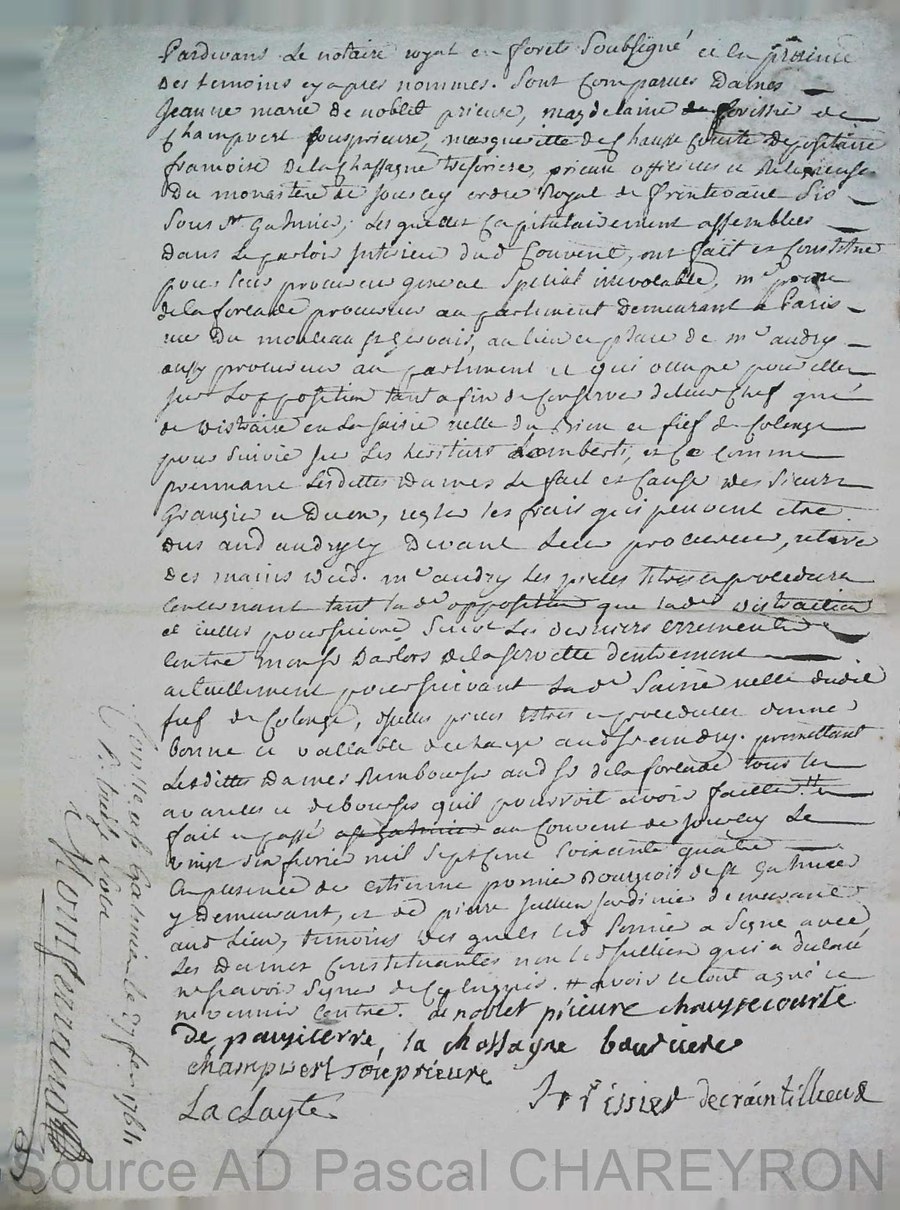 Pardevans Le notaire royal en forets Soubsigné et en presence
Des temoins cy apres nommes. Sont Comparues Dames
Jeanne marie de noblet prieure, magdelaine de
Champvert sousprieure, margueritte de Chausse Courte depositaire
françoise De la Chassagne tresoriere, prieure officieres et Religieuses
Du monastere de Jourcey ordre Royal de frontevaut Sis
Sous St Galmier, Lesquelles Capitulairement assemblées
Dans Le parloir Interieur dud Couvent, ont fait et Constitué
pour leur procureur general special irrevocable, me
de la forcade procureur au parlement demeurant a Paris
rue Du monceau St gervais, au lieu et place de me audry
aussy procureur au parlement et qui occupe pour elles
sur Lopposition tant afin de Conserver de leur Chef que
de distraire en La saisie réelle du Bien et fief de Colonge
poursuivie sur Les heritiers Lambert, et Ce comme
prennant Lesdittes Dames Le fait et Cause des Sieurs
Grangier et , regler les frais qui peuvent etre
dus aud audry cy Devant Leur procureur, retirer
des mains dud. me audry Les pieces titres et procedures
Concernant tant lade opposition que lade distraction
et icelles poursuivre suivt Les derniers errements
Contre mons Darlors De la servette
actuellement poursuivant La de Saisie réelle dudit
fief de Colonge, desdites pieces titres et procedures donner
bonne et vallable decharge aud Sr audry. promettant
Lesdittes Dames Rembourser aud Sr de la forcade tous les
avances et debourses quil pourroit avoir
fait et passé a St Galmier au Couvent de Jourcey Le
vingt six fevrier mil sept cent soixante quatre
En presence de estienne ponnier Bourgeois de St Galmier
y Demeurant, et de pierre Jullien Jardinier demeurant
aud Lieu, temoins des quels led Ponnier a Signé avec
Les Dames Constituantes non led Jullien qui a declaré
ne sçavoir signer de ce enquis. # avoir le tout agréé et
ne venir Contre. de noblet prieure chaussecourte
de , la chassagne
champvert souprieure
La clayte
Tixissier de craintilleux
Controllé a St Galmier le 27 fev 1764
R. treize sols
Source AD Pascal CHAREYRON